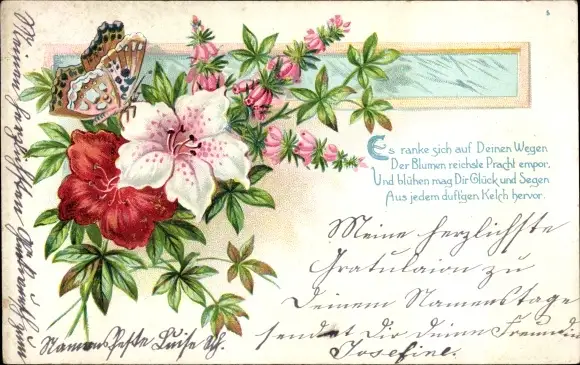 Es ranke sich auf Deinen Wegen
Der Blumen reichste Pracht empor,
Und blühen mag Dir Glück und Segen
Aus jedem duftgen Kelch hervor.
Meine herzlichste
Gratulaion zu
Deinem Namenstage
sendet Dir deine Freundin
Josefine.
Meinen herzlichsten Glückwunsch zum
Namensfeste Luise Sch.